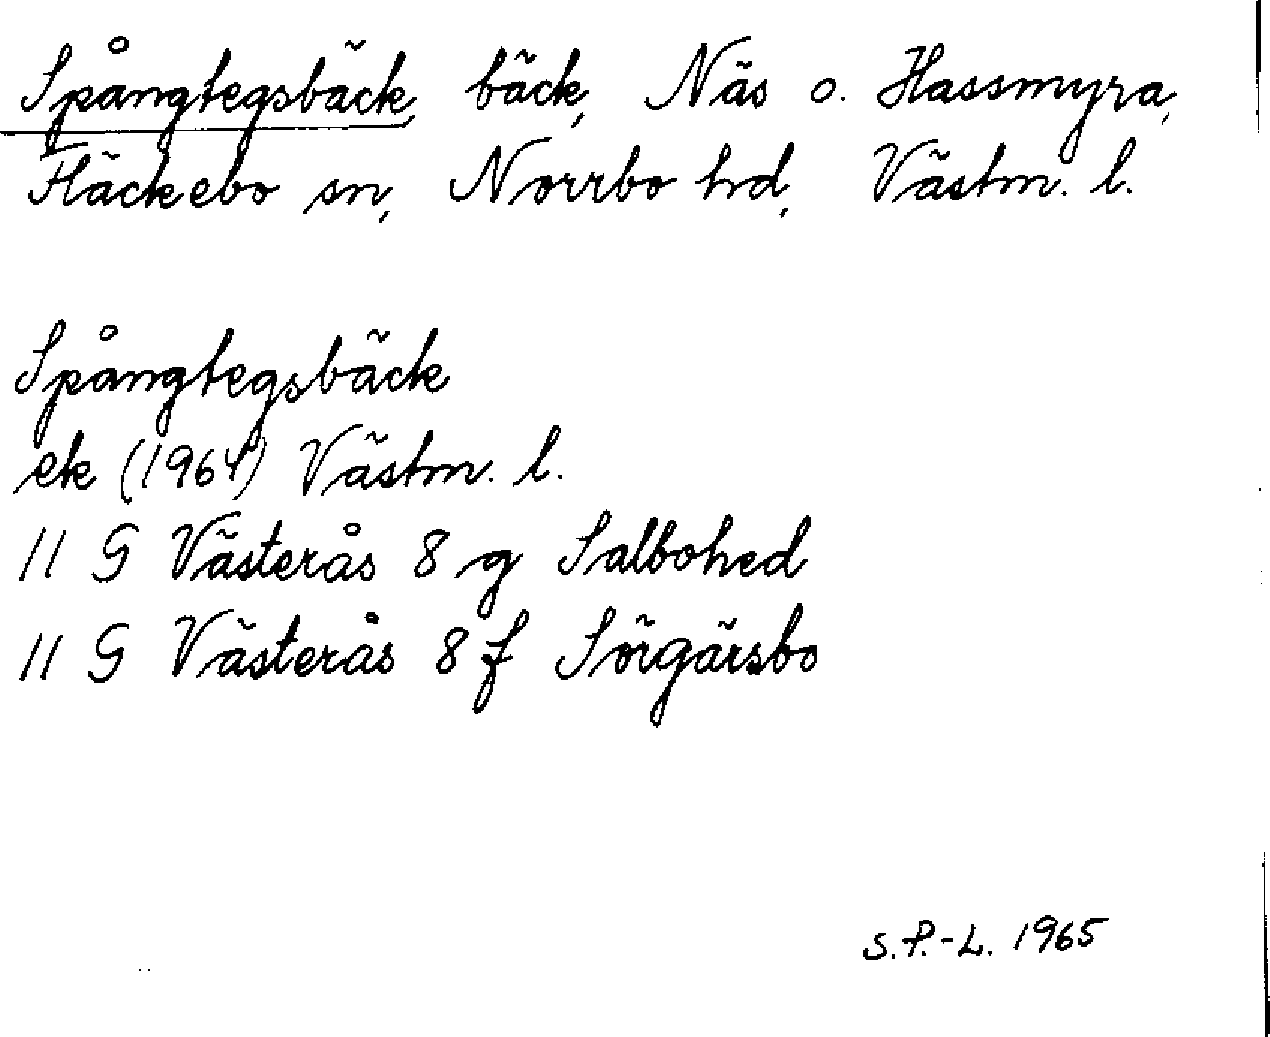 Spångtegsbäck, bäck, Näs o. Hassmyra,
Fläckebo sn, Norrbo hd, Västm. l.
Spångtegsbäck
ek (1964) Västm. l.
11 G Västerås 8 g Salbohed
11 G Västerås 8 f Sörgärsbo
S.P.-L. 1965